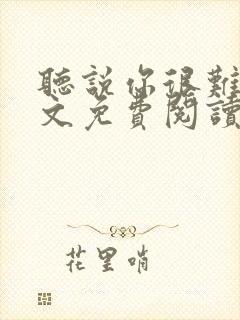 聽說你很難
文免費閱讀
花里哨